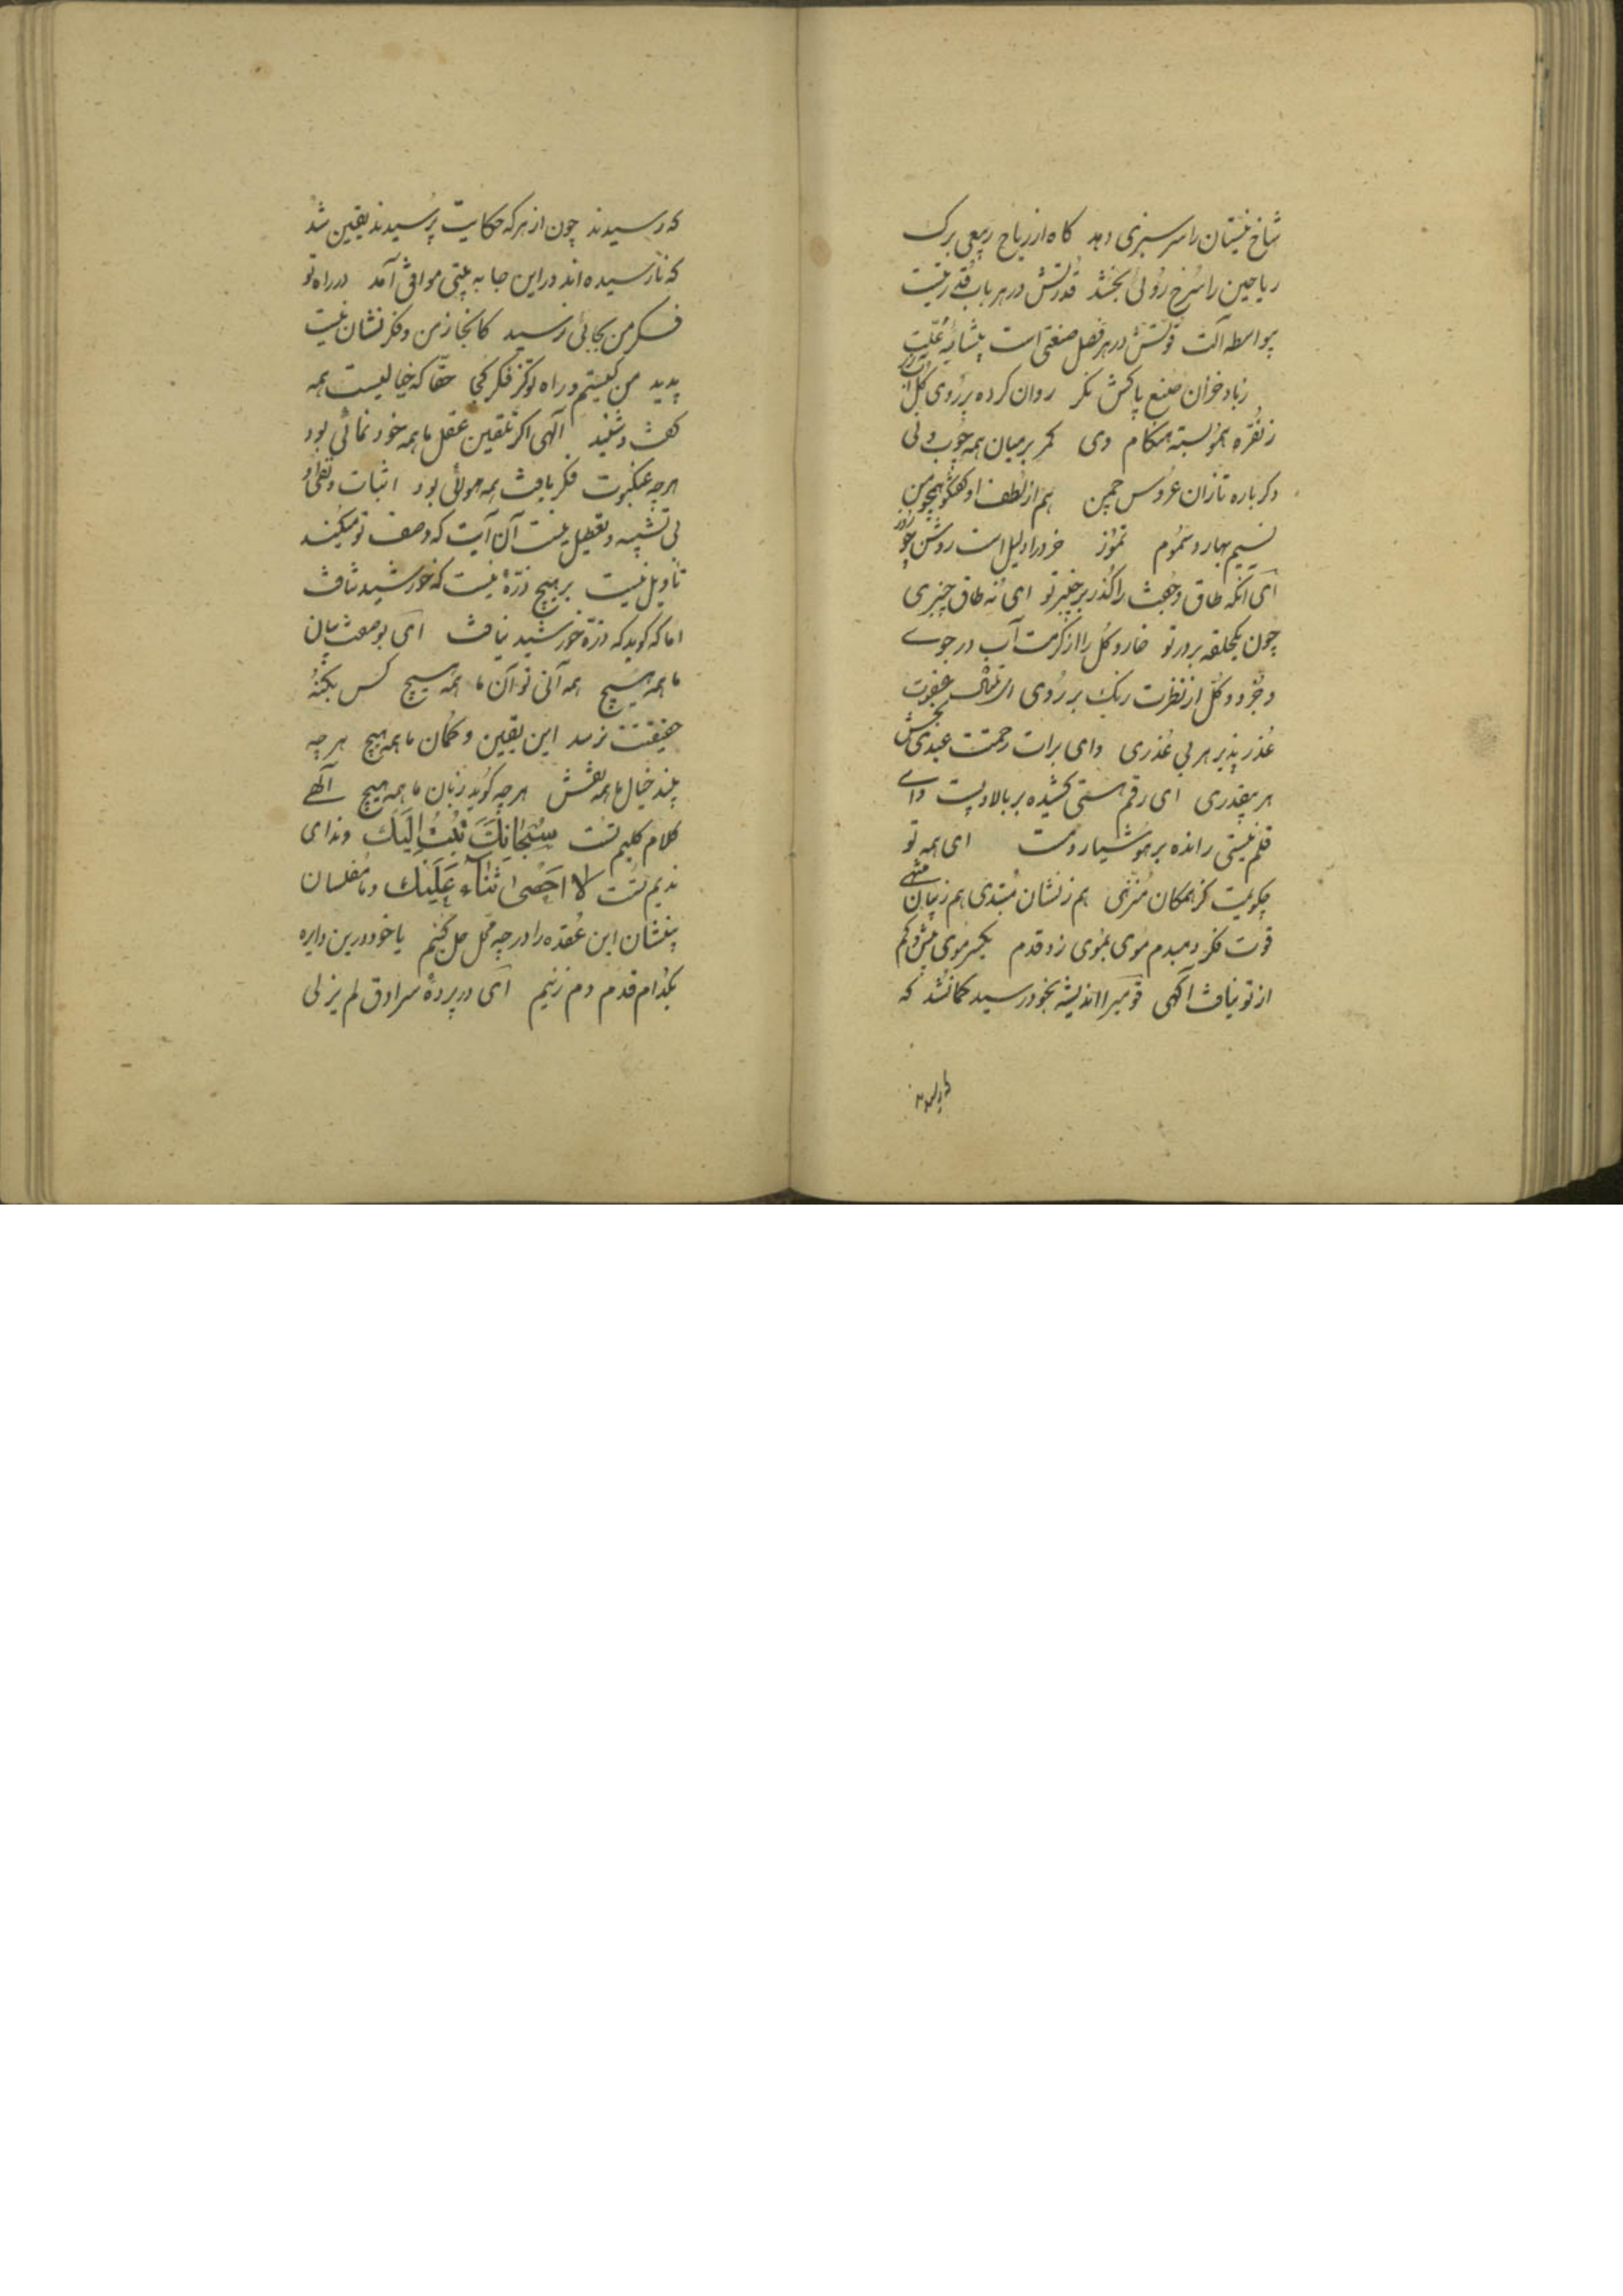 شاخ نیستان را سرسبزی دهد کاه از ریاح ربیعی برک
ریاحین را سرخ روئی بخشد قدرتش در هر باب
بواسطه آلت قوتش در هر فصل صنعتی است بیشائبه علت
زباد خزان صنع پاکش نکر روان کرده بر روی کل آب زر
ز نقره همو بسته هنکام دی کمر بر میان همه چوب و نی
دکرباره تازان عروس چمن هم از لطف او کفتکو همچو من
نسیم بهار و سموم تموز خرد را دلیل است روشن چو روز
ای انکه طاق وهمت را کذر بر خیبر تو ای نه طاق چنبری
چون یکحلقه بر در تو خار و کل را از کرمت آب در جوی
و جزو و کل از نظرت رنک بر روی ای عفوت
عذر پذیر هر بی عذری و ای برات رحمتت عیدی بخش
هر بیقدری ای رقم هستی کشیده بر بالا و پست و ای
قلم نیستی رانده بر هوشیار و مست ای همه تو
چکویمت کز همکان منزهی هم ز نشان مبتدی هم ز بیان منتهی
قوت فکر دمبدم موی بموی زد قدم یکسر موی بیش و کم
از تو نیافت آکهی قومیرا اندیشه بخود رسید کمانشد که
که رسیدند چون از هر که حکایت پرسیدند یقین شد
که نارسیده اند در این جا به بیتی موافق آمد در راه تو
فکر من بجائی نرسید کانجا ز من و فکر نشان نیست
پدید من کیستم و راه تو کز فکر کجا حقا که خیالیست همه
کفت و شنید آلهی اکر تلقین عقل ما همه خود نمائی بود
هر چه عنکبوت فکر بافت همه هوائی بود اثبات و نفی او
بی تشبیه و تعطیل نیست آن آیت که وصف تو میکند
تاویل نیست بر هیچ ذرهٔ نیست که خورشید نتافت
اما که کوید که ذره خورشید نیافت ای بوصفت بیان
ما همه هیچ همه آنی تو آن ما همه هیچ کس بکنه
حقیقتت نرسد این یقین و کمان ما همه هیچ هر چه
بیند خیال ما همه نقش هر چه کوید زبان ما همه هیچ آلهی
کلام کلیم تست سبحانک تبت الیک و ندای
ندیم تست لا احصی ثناء علیک و ما مفلسان
بینشان این عقده را در چه محل حل کنیم یا خود درین دایره
بکدام قدم دم زنیم ای در پردهٔ سرادق لم یزلی